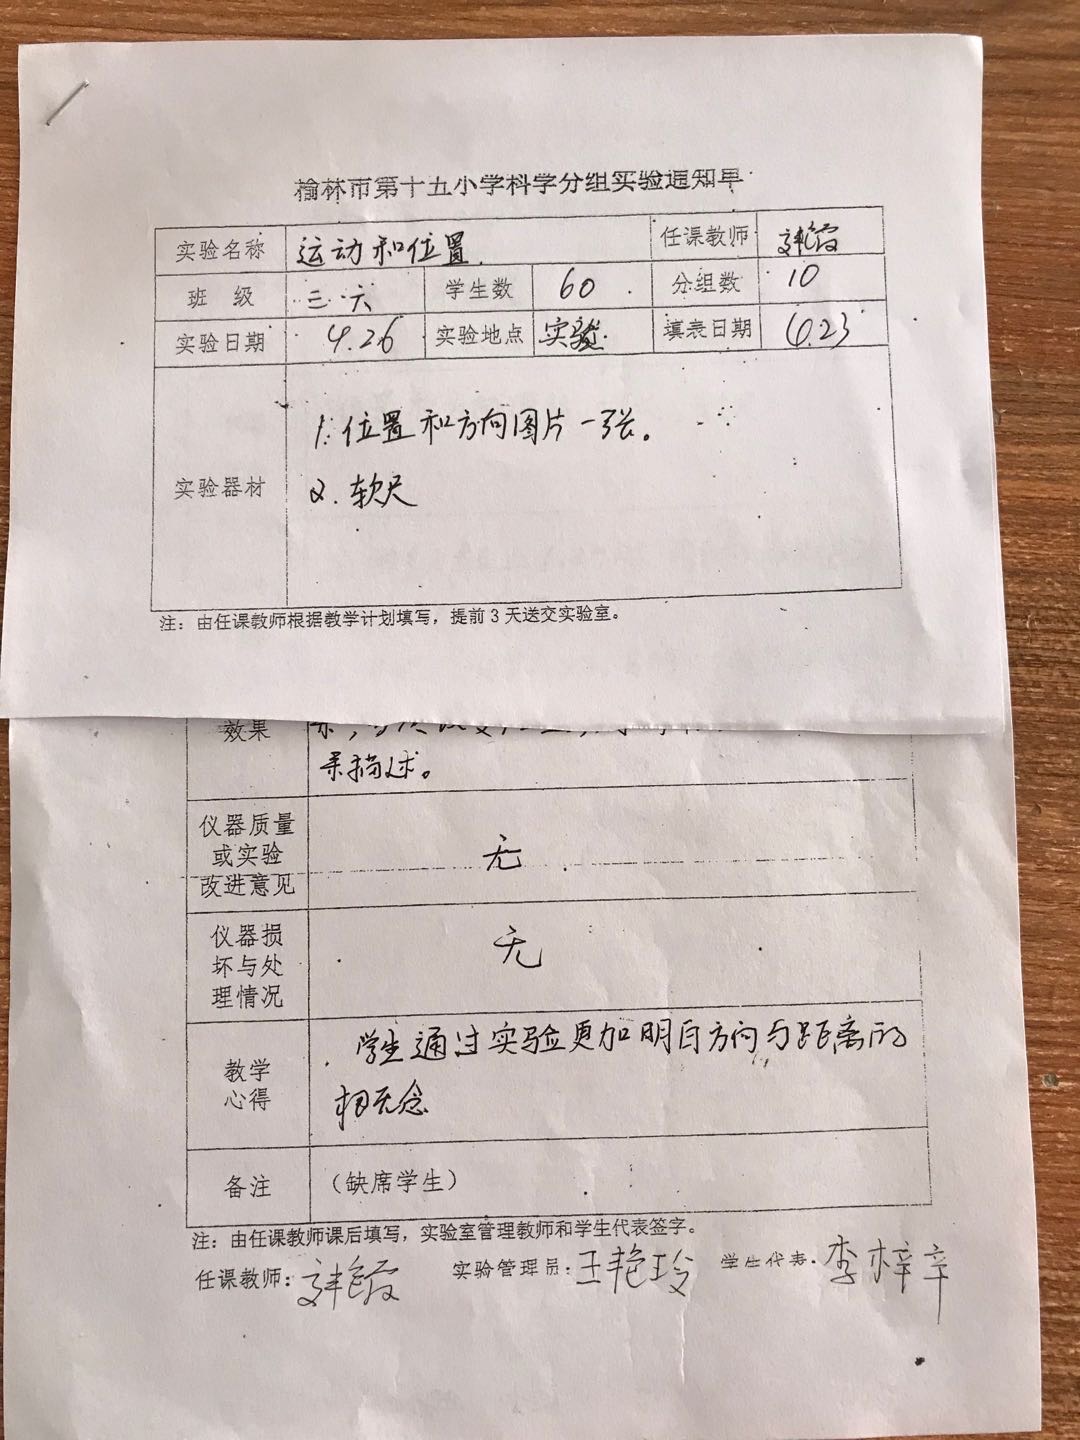 榆林市第十五小学科学分组实验通知单
实验名称 运动和位置 任课教师
班 级 三.六 学生数 60 分组数 10
实验日期 4.26 实验地点 实验 填表日期 4.23
1.位置和方向图片一张。
实验器材
2.软尺
注：由任课教师根据教学计划填写，提前3天送交实验室。
效果
来描述。
仪器质量
或实验
改进意见
无
仪器损
坏与处
理情况
无
教学
心得
学生通过实验更加明白方向与距离的
概念
备注 （缺席学生）
注：由任课教师课后填写，实验室管理教师和学生代表签字。
任课教师： 实验管理员：王艳玲 学生代表：李梓辛